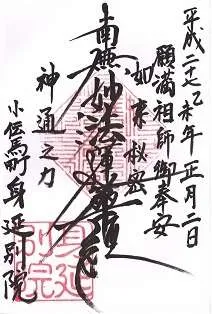 平成二十七乙未年 正月二日
願満祖師御奉安
如来秘密
南無妙法蓮華經
神通之力
小伝馬町身延別院
身延別院